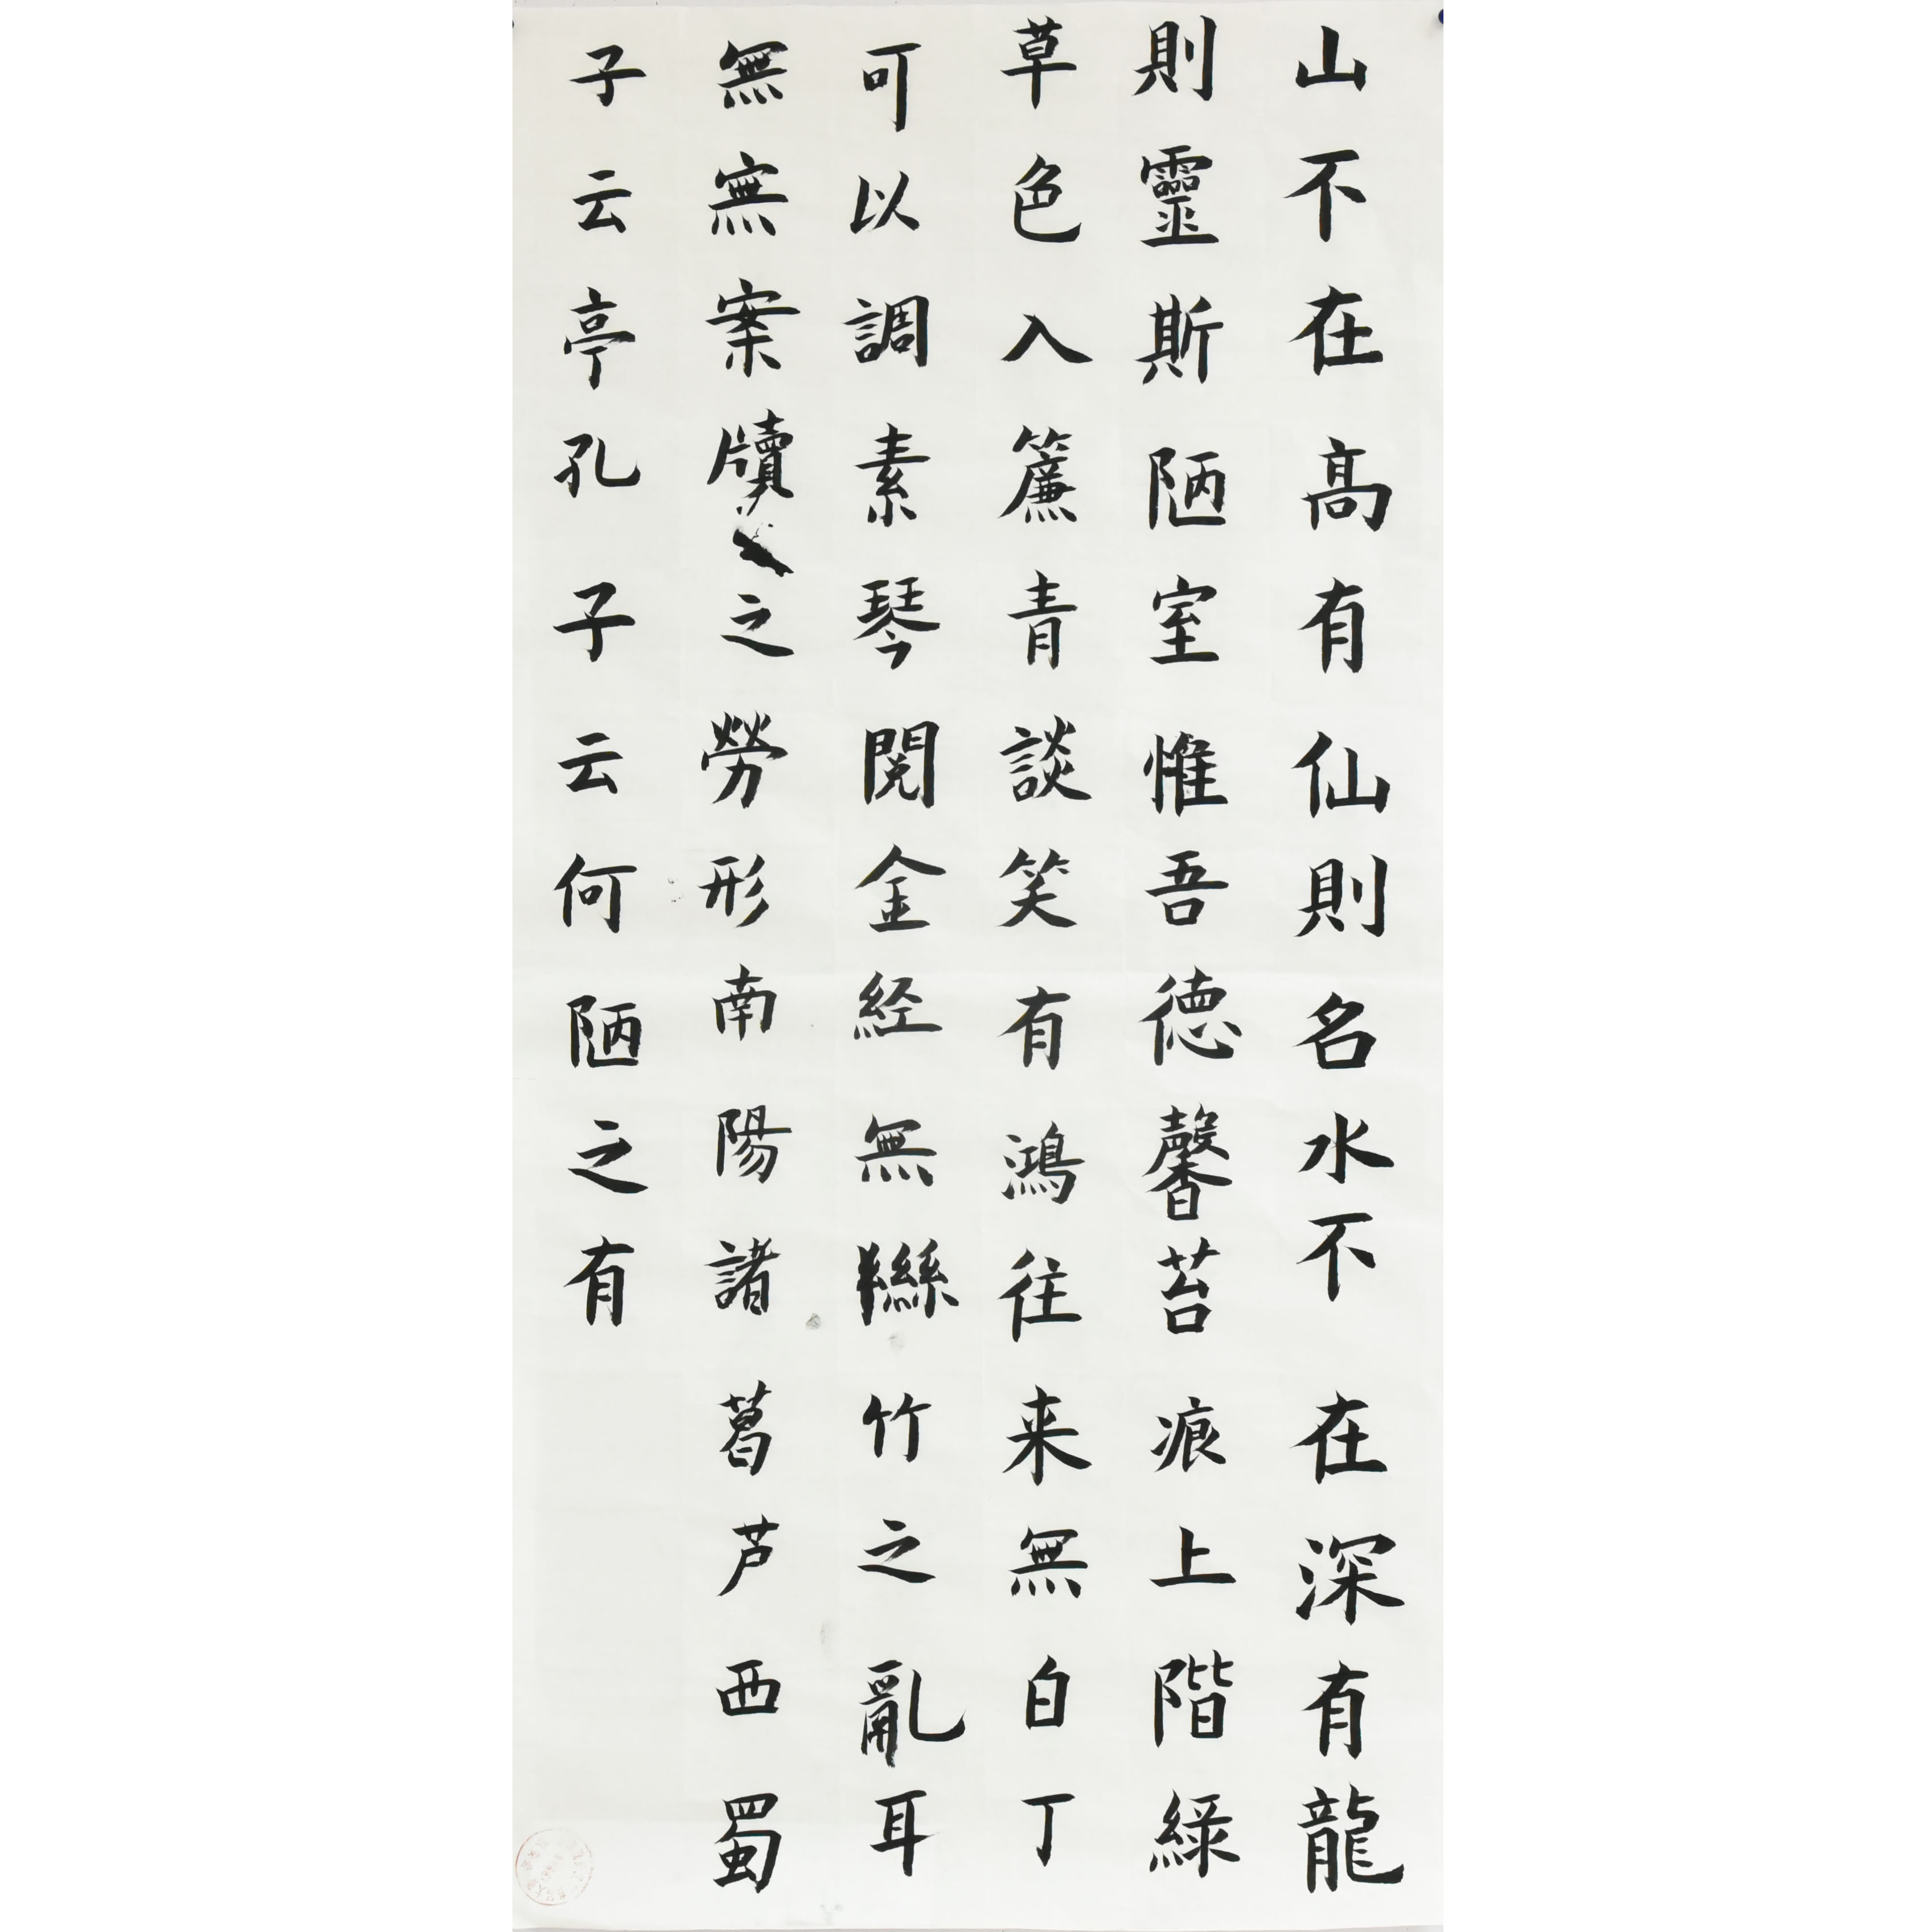 山不在高有仙則名水不在深有龍
則靈斯陋室惟吾徳馨苔痕上階緑
草色入簾青談笑有鴻往来無白丁
可以調素琴閲金経無絲竹之亂耳
無無案牘之勞形南陽諸葛芦西蜀
子云亭孔子云何陋之有